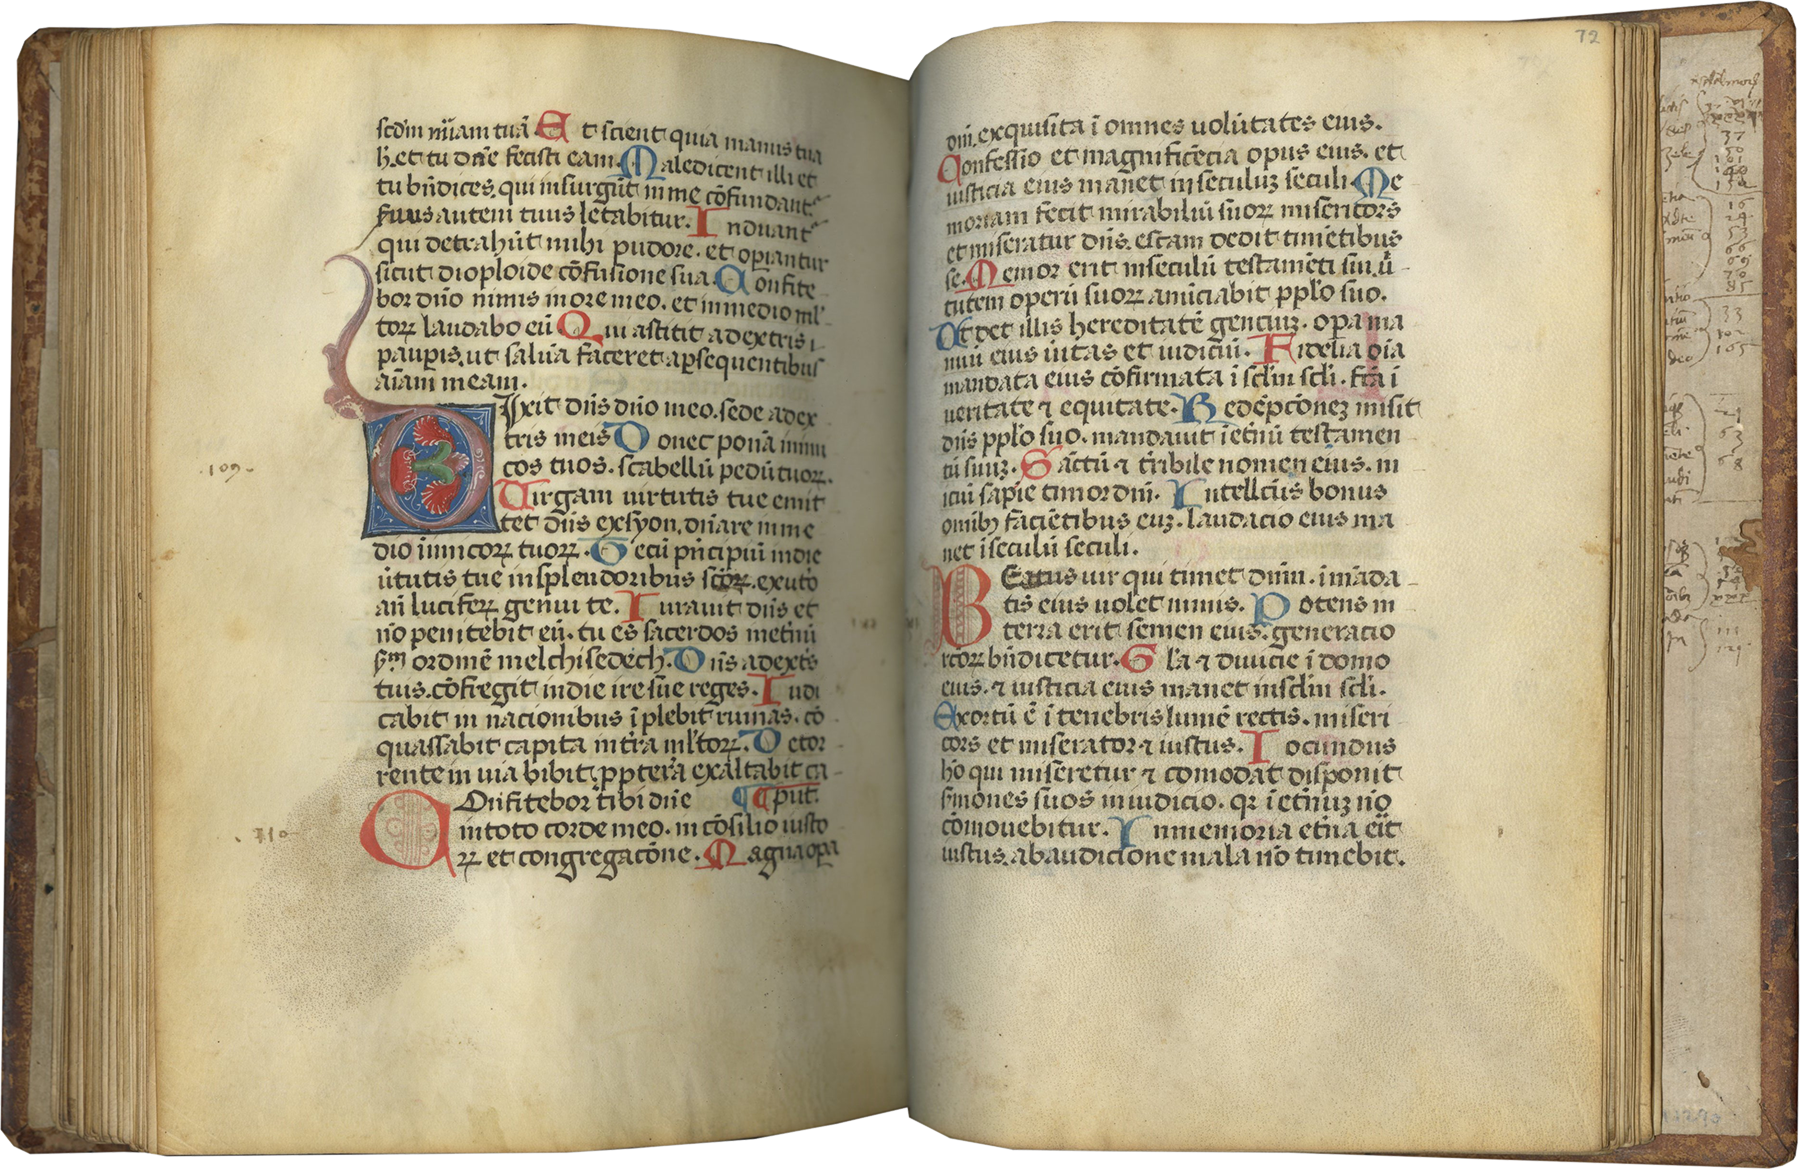 scd̄m mīam tuā Et scient quia manus tua
h̄.et tu dn̄e fecisti eam.Maledicent illi et
tu bn̄dices.qui insurgūt in me cōfundant᷑
s̄uus autem tuus letabitur.Induant᷑
qui detrahūt mihi pudore.et operiantur
sicut dioploide cōfusione sua.Confite
bor dn̄o nimis in ore meo.et in medio ml᷑
torꝝ laudabo eū Qui astitit adextris
paupis.ut salua faceret apsequentibus
aīam meam.
Dixit dn̄s dn̄o meo.sede adex
tris meis Donec ponā inimi
cos tuos.scabellū pedū tuorꝝ.
109
Uirgam uirtutis tue emit
tet dn̄s exsyon.dn̄are in me
dio inimicorꝝ tuorꝝ.Tecū pn̄cipiū indie
ūtutis tue in splendoribus sc̄orꝝ.exuto
an̄ luciferꝝ genui te.Iurauit dn̄s et
nō penitebit eū.tu es sacerdos inet̄nū
s̄m ordinē melchisedech.Dn̄s adext᷑s
tuis.cōfregit indie ire sue reges.Iudi
cabit in nacionibus īplebit ruinas.cō
quassabit capita in tr̄a ml᷑torꝝ.De tor
rente in uia bibit.ppterea exaltabit ca
put.
Onfitebor tibi dn̄e
in toto corde meo.in cōsilio iusto
110
rꝝ et congregacōne.Magna opa
72
dn̄i.exquisita ī omnes uolūtates eius.
Confessio et magnificēcia opus eius.et
iusticia eius manet in seculuꝫ seculi.Me
moriam fecit mirabiliū suorꝝ misericors
et miseratur dn̄s.escam dedit timētibus
se.Memor erit inseculū testamēti sui.ū
tutem operū suorꝝ anūciabit pplo suo.
Ut det illis hereditatē genciuꝫ.opa ma
nuū eius ūitas et iudiciū.Fidelia oīa
mandata eius cōfirmata ī scl̄m scl̄i.fc̄a ī
ueritate ⁊ equitate.Redēpcōneꝫ misit
dn̄s pplo suo.mandauit īet̄nū testamen
tū suuꝫ.Sāctū ⁊ tr̄ibile nomen eius.in
iciū sapīe timor dn̄i.Intellc̄us bonus
omībꝫ faciētibus euꝫ.laudacio eius ma
net ī seculū seculi.
Beatus uir qui timet dn̄m.ī māda
tis eius uolet nimis.Potens in
terra erit semen eius.generacio
rc̄orꝝ bn̄dicetur.Gl̄a ⁊ diuicie ī domo
eius.⁊ iusticia eius manet inscl̄m scl̄i.
Exortū ē ī tenebris lumē rectis.miseri
cors et miserator ⁊ iustus.Iocundus
hō qui miseretur ⁊ comodat disponit
s̄mones suos in iudicio.qꝛ ī et̄nuꝫ nō
cōmouebitur.In memoria et̄na eīt
iustus.abaudicione mala nō timebit.
37
50
16
24
53
66
69
70
85
33
102
165
63
68